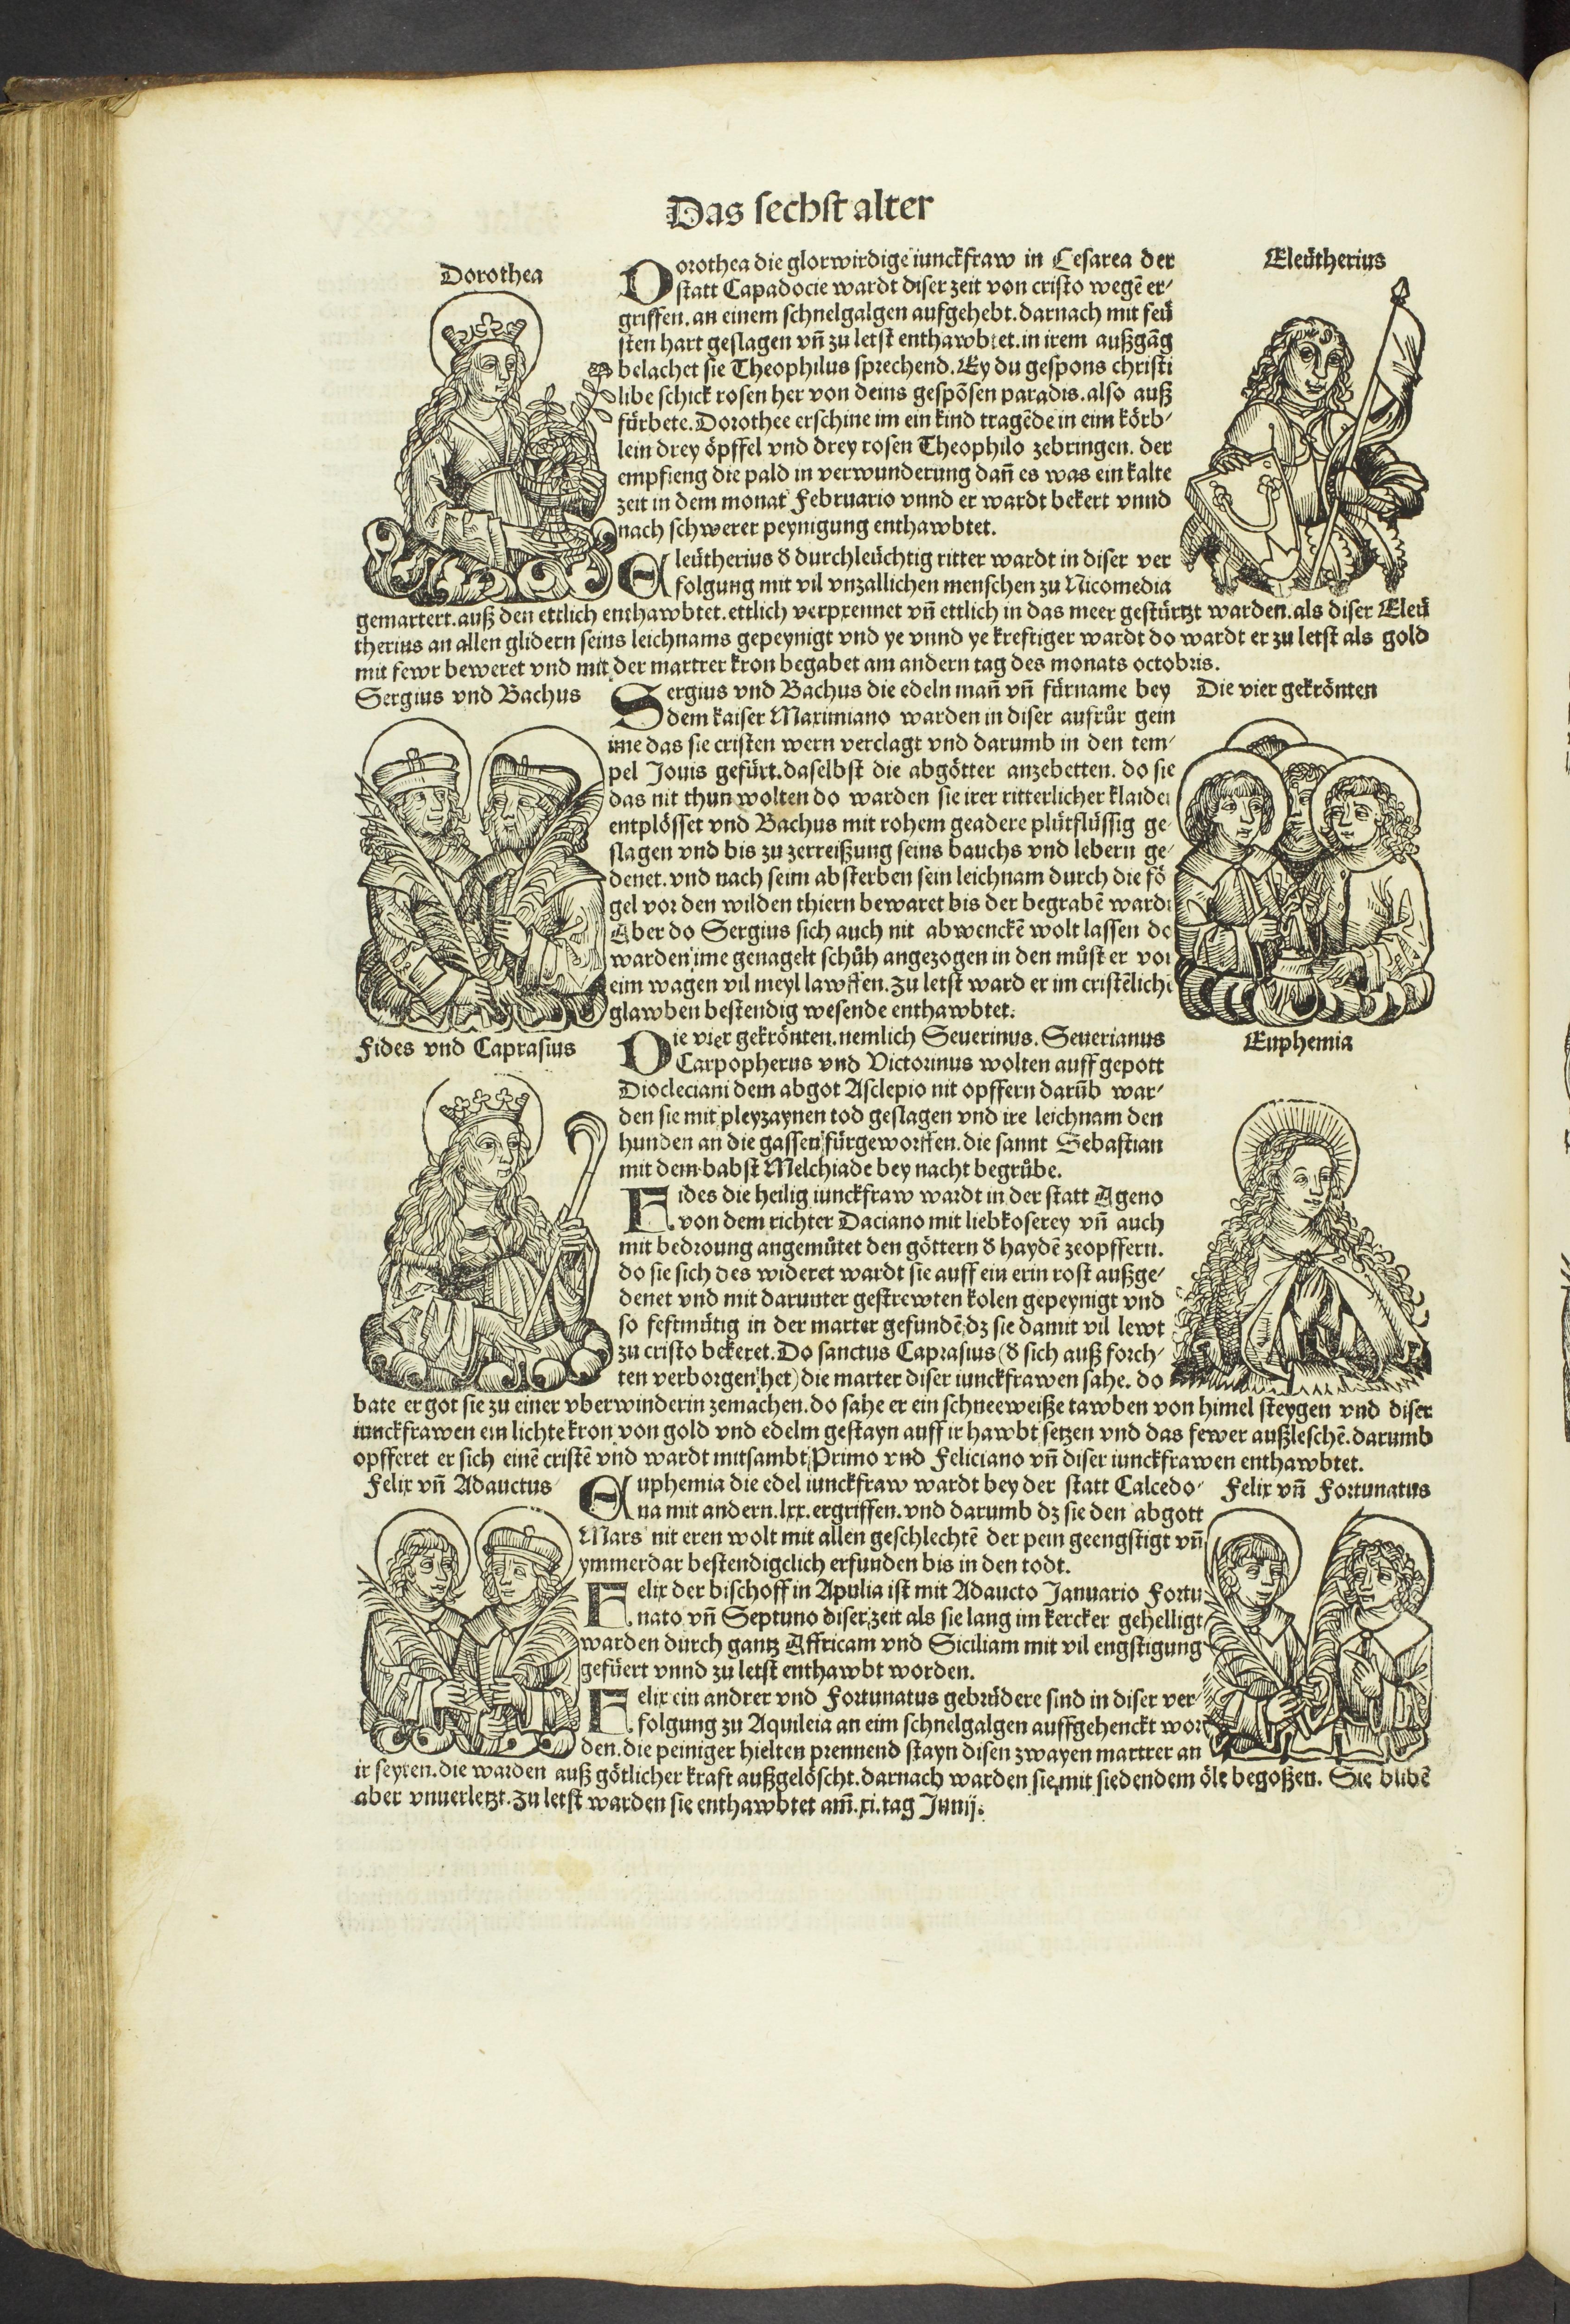 Das sechst alter
Dorothea
Dorothea die glorwirdige iunckfraw in Cesarea der
statt Capadocie wardt diser zeit von cristo wegē er-
griffen. an einem schnelgalgen aufgehebt. darnach mit feü
sten hart geslagen vn̄ zu letst enthawbtet. in irem außgāg
belachet sie Theophilus sprechend. Ey du gespons christi
libe schick rosen her von deins gespōsen paradis. also auß
fürbete. Dorothee erschine im ein kind tragēde in eim körb-
lein drey öpffel vnd drey rosen Theophilo zebringen. der
empfieng die pald in verwunderung dan̄ es was ein kalte
zeit in dem monat Februario vnnd er wardt bekert vnnd
nach schwerer peynigung enthawbtet.
Eleütherius
Eleütherius d durchleüchtig ritter wardt in diser ver
folgung mit vil vnzallichen menschen zu Nicomedia
gemartert. auß den ettlich enthawbtet. ettlich verprennet vn̄ ettlich in das meer gestürtzt warden. als diser Eleü
therius an allen glidern seins leichnams gepeynigt vnd ye vnnd ye kreftiger wardt do wardt er zu letst als gold
mit fewr beweret vnd mit der martrer kron begabet am andern tag des monats octobris.
Sergius vnd Bachus
Sergius vnd Bachus die edeln man̄ vn̄ fürname bey
dem kaiser Maximiano warden in diser aufrůr gein
ime das sie cristen wern verclagt vnd darumb in den tem-
pel Jouis gefürt. daselbst die abgötter anzebetten. do sie
das nit thun wolten do warden sie irer ritterlicher klaider
entplösset vnd Bachus mit rohem geadere plütflüssig ge-
slagen vnd bis zu zerreißung seins bauchs vnd lebern ge-
denet. vnd nach seim absterben sein leichnam durch die fö
gel vor den wilden thiern bewaret bis der begrabē wardt
Aber do Sergius sich auch nit abwenckē wolt lassen do
warden ime genagelt schůh angezogen in den můst er vor
eim wagen vil meyl lawffen. zu letst ward er im cristēlichē
glawben bestendig wesende enthawbtet.
Die vier gekrönten
Die vier gekrönten. nemlich Seuerinus. Seuerianus
Carpopherus vnd Victorinus wolten auff gepott
Diocleciani dem abgot Asclepio nit opffern darūb war-
den sie mit pleyzaynen tod geslagen vnd ire leichnam den
hunden an die gassen fürgeworffen. die sannt Sebastian
mit dem babst Melchiade bey nacht begrůbe.
Fides vnd Caprasius
Fides die heilig iunckfraw wardt in der statt Ageno
von dem richter Daciano mit liebkoserey vn̄ auch
mit bedroung angemůtet den göttern d haydē zeopffern.
do sie sich des wideret wardt sie auff ein erin rost außge-
denet vnd mit darunter gestrewten kolen gepeynigt vnd
so festmütig in der marter gefundē dz sie damit vil lewt
zu cristo bekeret. Do sanctus Caprasius (d sich auß forch-
ten verborgen het) die marter diser iunckfrawen sahe. do
bate er got sie zu einer vberwinderin zemachen. do sahe er ein schneeweiße tawben von himel steygen vnd diser
iunckfrawen ein lichte kron von gold vnd edelm gestayn auff ir hawbt setzen vnd das fewer außleschē. darumb
opfferet er sich einē cristē vnd wardt mitsambt Primo vnd Feliciano vn̄ diser iunckfrawen enthawbtet.
Euphemia
Euphemia die edel iunckfraw wardt bey der statt Calcedo-
na mit andern. lxx. ergriffen. vnd darumb dz sie den abgott
Mars nit eren wolt mit allen geschlechtē der pein geengstigt vn̄
ymmerdar bestendigclich erfunden bis in den todt.
Felix vn̄ Adauctus
Felix der bischoff in Apulia ist mit Adaucto Januario Fortu
nato vn̄ Septuno diser zeit als sie lang im kercker gehelligt
warden durch gantz Affricam vnd Siciliam mit vil engstigung
gefüert vnnd zu letst enthawbt worden.
Felix vn̄ Fortunatus
Felix ein andrer vnd Fortunatus gebrüdere sind in diser ver
folgung zu Aquileia an eim schnelgalgen auffgehenckt wor
den. die peiniger hielten prennend stayn disen zwayen martrer an
ir seyten. die warden auß götlicher kraft außgelöscht. darnach warden sie mit siedendem öle begoßen. Sie blibē
aber vnuerletzt. zu letst warden sie enthawbtet am̄. xi. tag Junij.